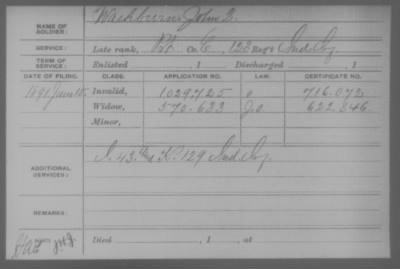 NAME OF SOLDIER: Washburn, John
SERVICE: Late rank, Pt. Co. C, 123 Reg't Ind Inf.
TERM OF SERVICE: Enlisted , 1 Discharged , 1
DATE OF FILING. CLASS. APPLICATION NO. LAW. CERTIFICATE NO.
1891 June 18, Invalid, 1.029.725 716.072
Widow, 570.633 622.846
Minor,
ADDITIONAL SERVICES: I. 43" & K. 129 Ind Inf.
REMARKS:
Died , 1 , at